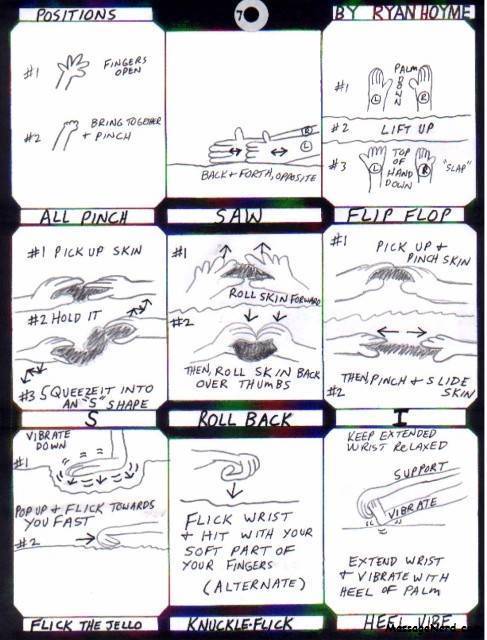 POSITIONS
7
BY RYAN HOYME
#1
FINGERS
OPEN
#2
BRING TOGETHER
+ PINCH
ALL PINCH
R
L
BACK + FORTH, OPPOSITE
SAW
#1
PALM
DOWN
L
R
#2 LIFT UP
#3
TOP
OF
HAND
DOWN
L
R
"SLAP"
FLIP FLOP
#1 PICK UP SKIN
#2 HOLD IT
#3 SQUEEZE IT INTO
AN "S" SHAPE
S
#1
ROLL SKIN FORWARD
#2
THEN, ROLL SKIN BACK
OVER THUMBS
ROLL BACK
#1
PICK UP +
PINCH SKIN
THEN, PINCH + SLIDE
#2 SKIN
I
VIBRATE
DOWN
#1
POP UP & FLICK TOWARDS
YOU FAST
#2
FLICK THE JELLO
FLICK WRIST
+ HIT WITH YOUR
SOFT PART OF
YOUR FINGERS
(ALTERNATE)
KNUCKLE-FLICK
KEEP EXTENDED
WRIST RELAXED
SUPPORT
VIBRATE
EXTEND WRIST
+ VIBRATE WITH
HEEL OF PALM
HEEL VIBE